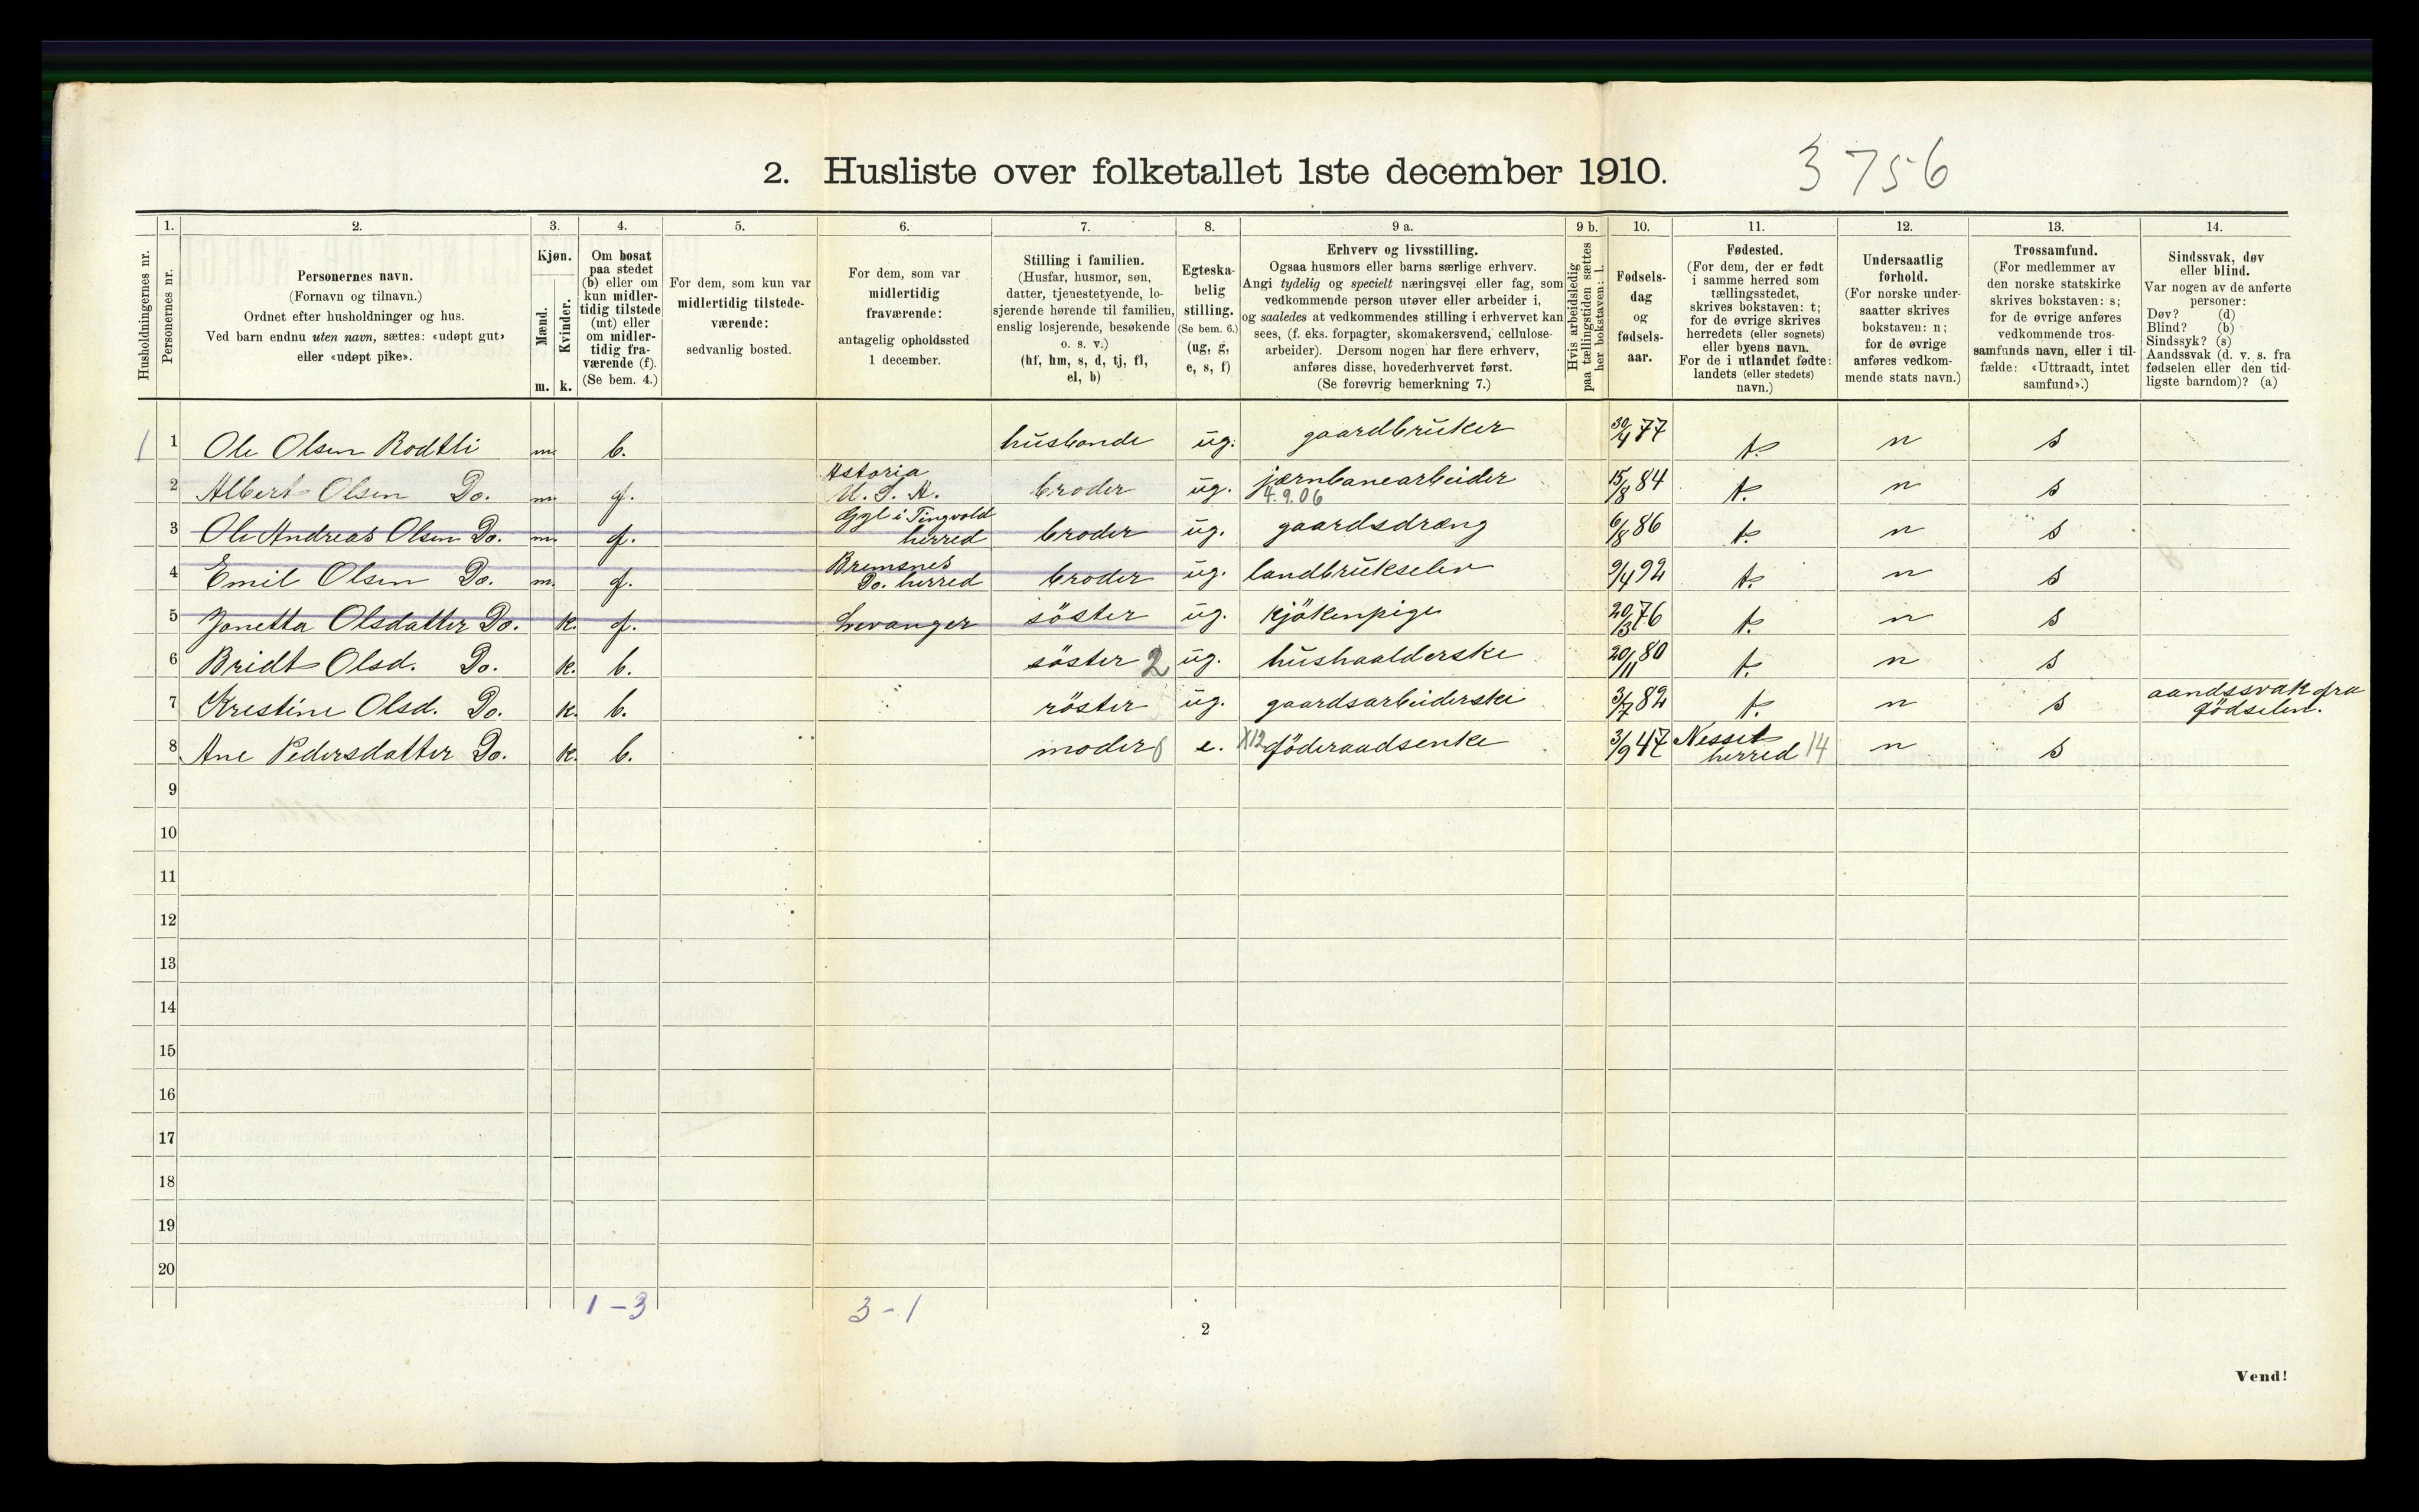 2. Husliste over folketallet 1ste december 1910.
3756
1. 2. 3. 4. 5. 6. 7. 8. 9 a. 9 b. 10. 11. 12. 13. 14.
Husholdningernes nr.
Personernes nr.
Personernes navn.
(Fornavn og tilnavn.)
Ordnet efter husholdninger og hus.
Ved barn endnu uten navn, sættes: «udøpt gut»
eller «udøpt pike».
Kjøn.
Mænd.
Kvinder.
m. k.
Om bosat
paa stedet
(b) eller om
kun midler-
tidig tilstede
(mt) eller
om midler-
tidig fra-
værende (f).
(Se bem. 4.)
For dem, som kun var
midlertidig tilstede-
værende:
sedvanlig bosted.
For dem, som var
midlertidig
fraværende:
antagelig opholdssted
1 december.
Stilling i familien.
(Husfar, husmor, søn,
datter, tjenestetyende, lo-
sjerende hørende til familien,
enslig losjerende, besøkende
o. s. v.)
(hf, hm, s, d, tj, fl,
el, b)
Egteska-
belig
stilling.
(Se bem. 6.)
(ug, g,
e, s, f)
Erhverv og livsstilling.
Ogsaa husmors eller barns særlige erhverv.
Angi tydelig og specielt næringsvei eller fag, som
vedkommende person utøver eller arbeider i,
og saaledes at vedkommendes stilling i erhvervet kan
sees, (f. eks. forpagter, skomakersvend, cellulose-
arbeider). Dersom nogen har flere erhverv,
anføres disse, hovederhvervet først.
(Se forøvrig bemerkning 7.)
Hvis arbeidsledig
paa tællingstiden sættes
her bokstaven: l.
Fødsels-
dag
og
fødsels-
aar.
Fødested.
(For dem, der er født
i samme herred som
tællingsstedet,
skrives bokstaven: t;
for de øvrige skrives
herredets (eller sognets)
eller byens navn.
For de i utlandet fødte:
landets (eller stedets)
navn.)
Undersaatlig
forhold.
(For norske under-
saatter skrives
bokstaven: n;
for de øvrige
anføres vedkom-
mende stats navn.)
Trossamfund.
(For medlemmer av
den norske statskirke
skrives bokstaven: s;
for de øvrige anføres
vedkommende tros-
samfunds navn, eller i til-
fælde: «Uttraadt, intet
samfund».)
Sindssvak, døv
eller blind.
Var nogen av de anførte
personer:
Døv? (d)
Blind? (b)
Sindssyk? (s)
Aandssvak (d. v. s. fra
fødselen eller den tid-
ligste barndom)? (a)
1 1 Ole Olsen Rødtli m. b. husbonde ug. gaardbruker 30/4 77 t. n s
2 Albert Olsen Do. m. f. Astoria U. S. A. broder ug. jærnbanearbeider 4.9.06 15/8 84 t. n s
3 Ole Andreas Olsen Do. m. f. Ggl i Tingvold herred broder ug. gaardsdræng 6/8 86 t. n s
4 Emil Olsen Do. m. f. Bremsnes Do. herred broder ug. landbrukselev 9/4 92 t. n s
5 Jonetta Olsdatter Do. k. f. Levanger söster ug. kjökenpige 20/3 76 t. n s
6 Bridt Olsd. Do. k. b. söster 2 ug. hushaalderske 20/11 80 t. n s
7 Krestine Olsd. Do. k. b. söster ug. gaardsarbeiderske 3/7 82 t. n s aandssvak fra födselen.
8 Ane Pedersdatter Do. k. b. moder e. X12 föderaadsenke 3/9 47 Nesset herred 14 n s
9
10
11
12
13
14
15
16
17
18
19
20
1 - 3 3 - 1
2
Vend!